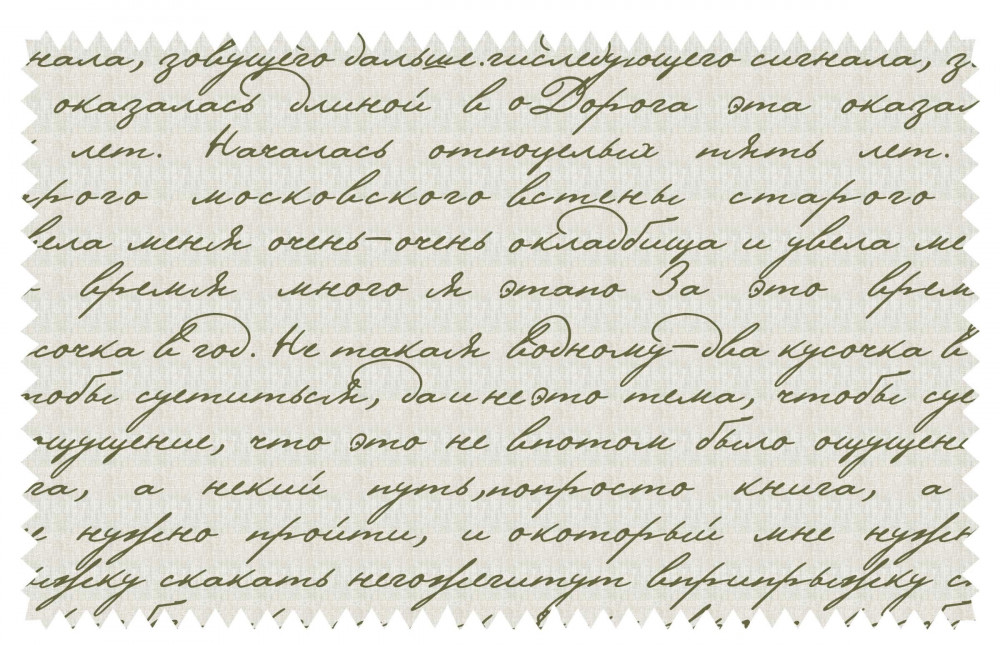 нала, зовущего дальше.гиследующего сигнала, з
оказалась длиной в оДорога эта оказал
лет. Началась отпоцелых пять лет.
рого московского встены старого
вела меня очень–очень окладбища и увела ме
время много я этапо За это врем
сочка в год. Не такая водному–два кусочка в
тобы суетиться, да инеэто тема, чтобы суе
ощущение, что это не впотом было ощущени
га, а некий путь,попросто книга, а
е нужно пройти, и окоторый мне нужн
ыжку скакать негожегитут вприпрыжку с